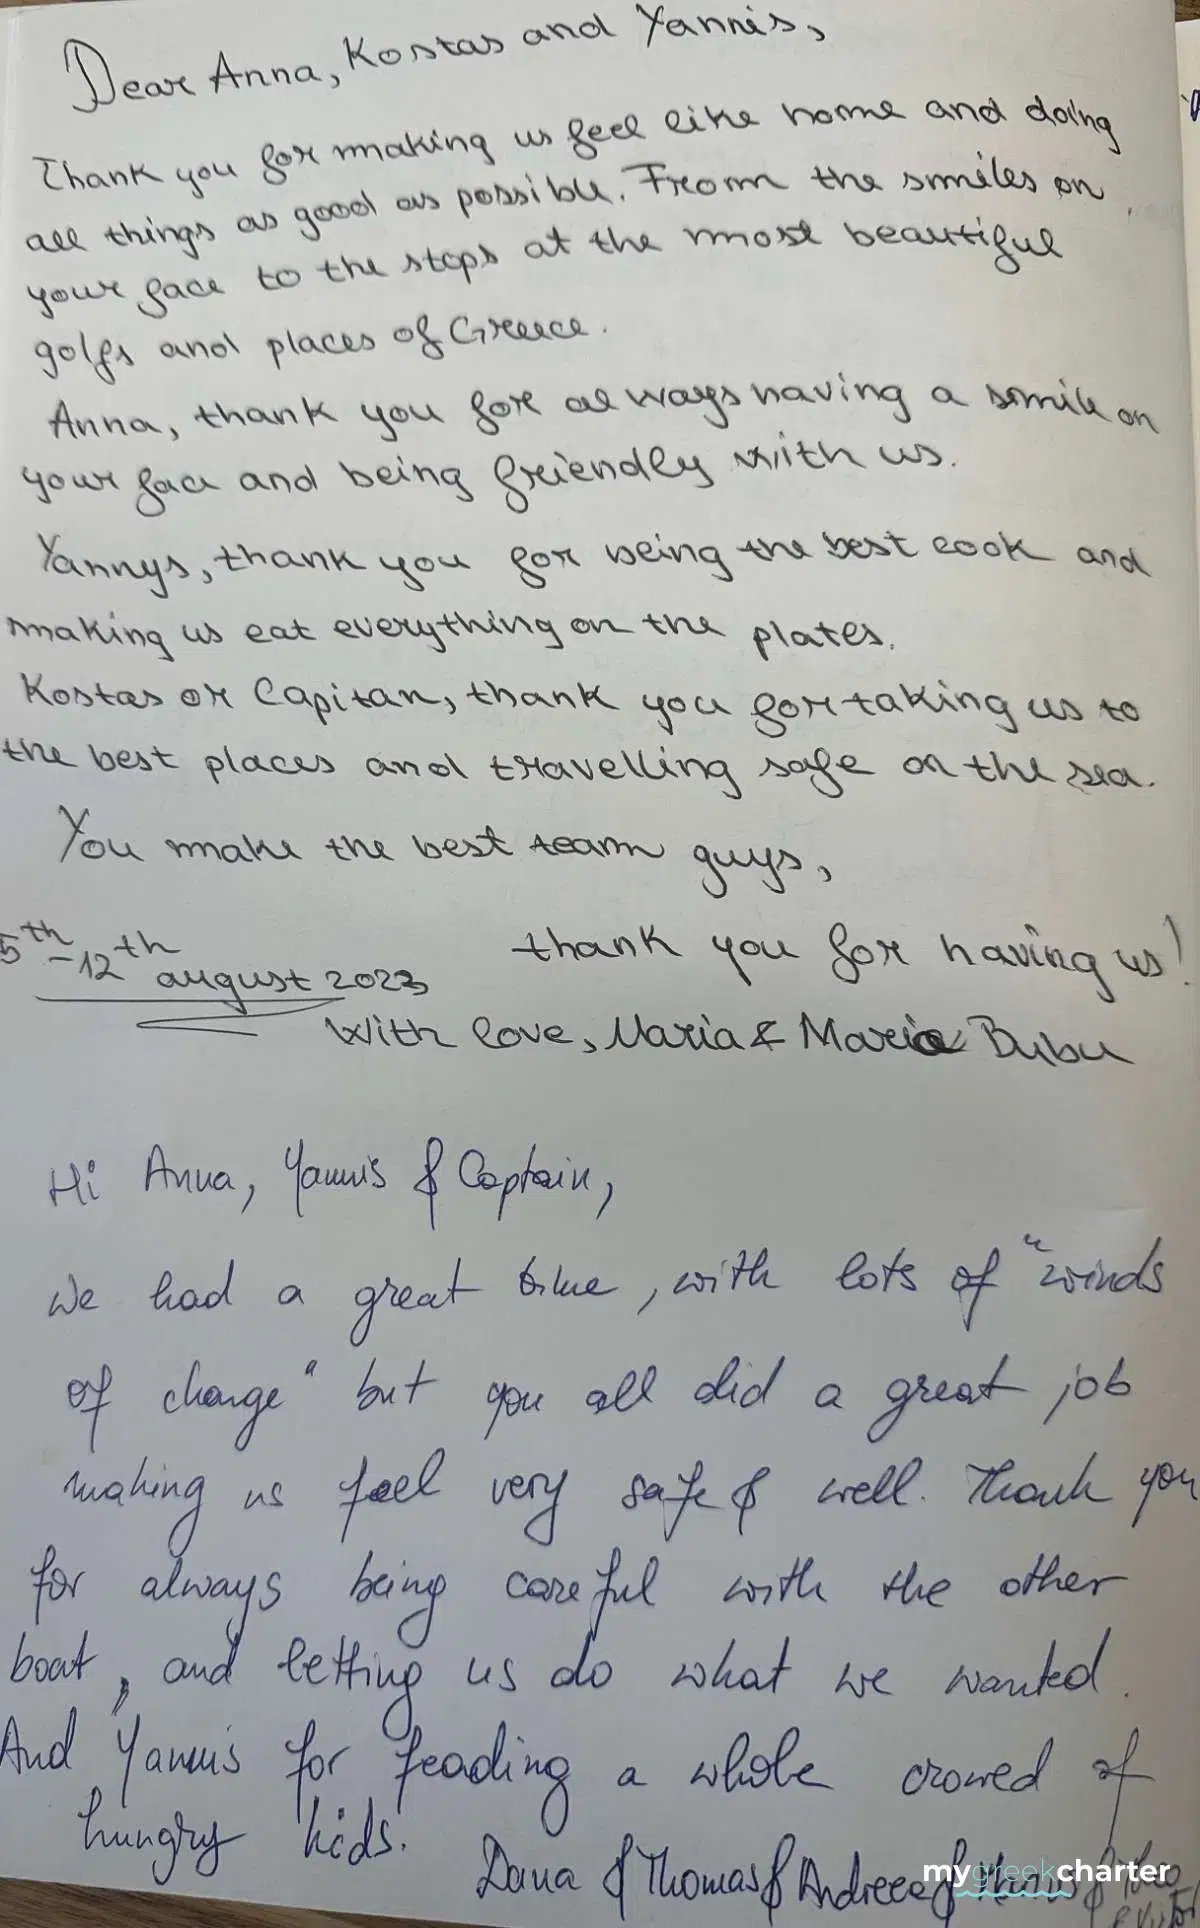 Dear Anna, Kostas and Yannis,
Thank you for making us feel like home and doing
all things as good as possible. From the smiles on
your face to the stops at the most beautiful
golfs and places of Greece.
Anna, thank you for always having a smile on
your face and being friendly with us.
Yannys, thank you for being the best cook and
making us eat everything on the plates.
Kostas or Capitan, thank you for taking us to
the best places and travelling safe on the sea.
You make the best team guys,
thank you for having us!
5th-12th august 2023
With love, Maria & Maria Bubu
Hi Anna, Yannis & Captain,
We had a great time, with lots of "winds
of change" but you all did a great job
making us feel very safe & well. Thank you
for always being careful with the other
boat, and letting us do what we wanted.
And Yannis for feading a whole crowed of
hungry kids.
Dana & Thomas & Andreea &
mygreekcharter